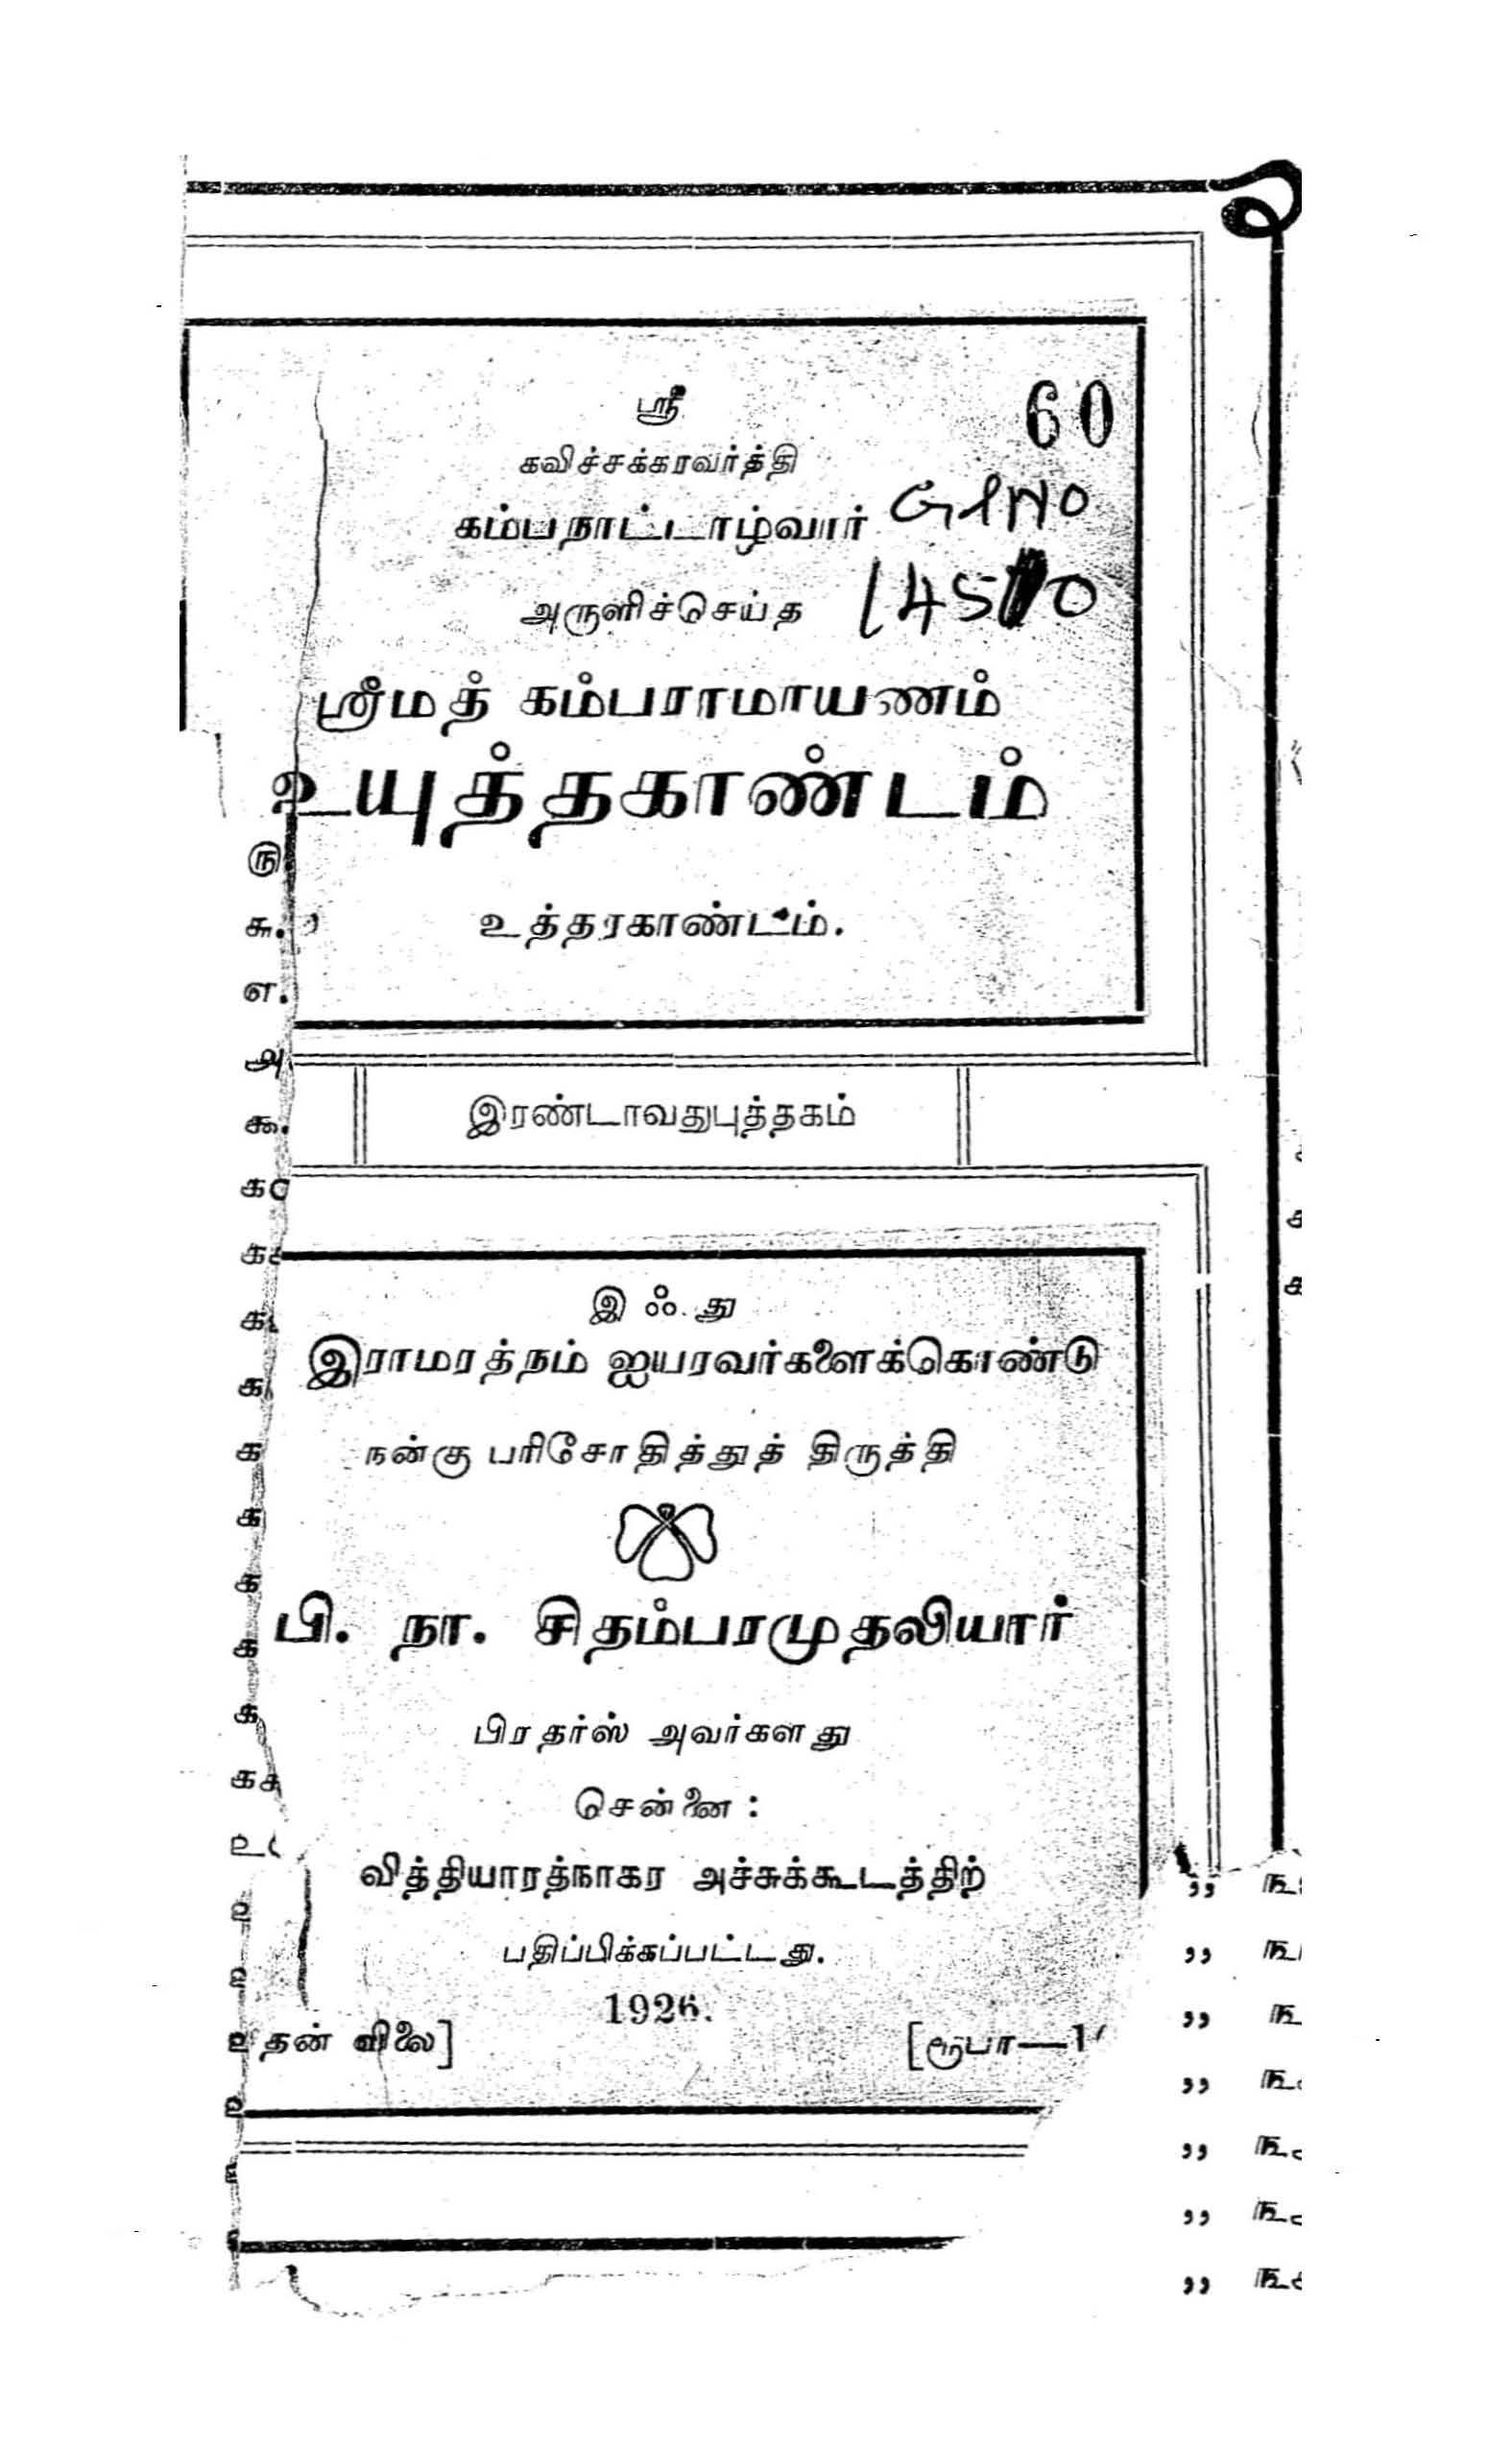 ஸ்ரீ
60
கவிச்சக்கரவர்த்தி
கம்பநாட்டாழ்வார்
அருளிச்செய்த
ஸ்ரீமத் கம்பராமாயணம்
உயுத்தகாண்டம்
உத்தரகாண்டம்.
இரண்டாவதுபுத்தகம்
இஃது
இராமரத்நம் ஐயரவர்களைக்கொண்டு
நன்கு பரிசோதித்துத் திருத்தி
பி. நா. சிதம்பரமுதலியார்
பிரதர்ஸ் அவர்களது
சென்னை:
வித்தியாரத்நாகர அச்சுக்கூடத்திற்
பதிப்பிக்கப்பட்டது.
1926.
தன் விலை] [ரூபா—1